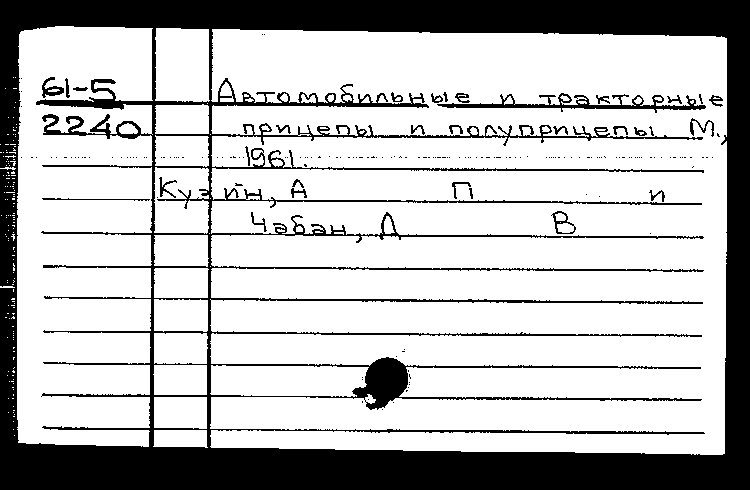 61-5 Автомобильные и тракторные
2240 прицепы и полуприцепы. М.,
1961.
Кузин, А П и
Чабан, Д В